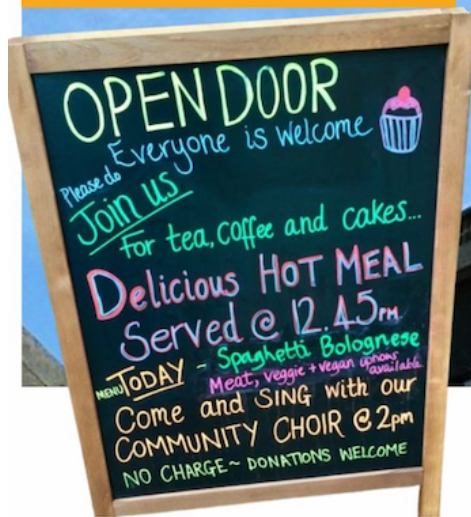 OPEN DOOR
Everyone is welcome
Please do
Join us
For tea, coffee and cakes...
Delicious HOT MEAL
Served @ 12.45PM
MENU TODAY - Spaghetti Bolognese
Meat, veggie + vegan options available
Come and SING with our
COMMUNITY CHOIR @ 2pm
NO CHARGE ~ DONATIONS WELCOME